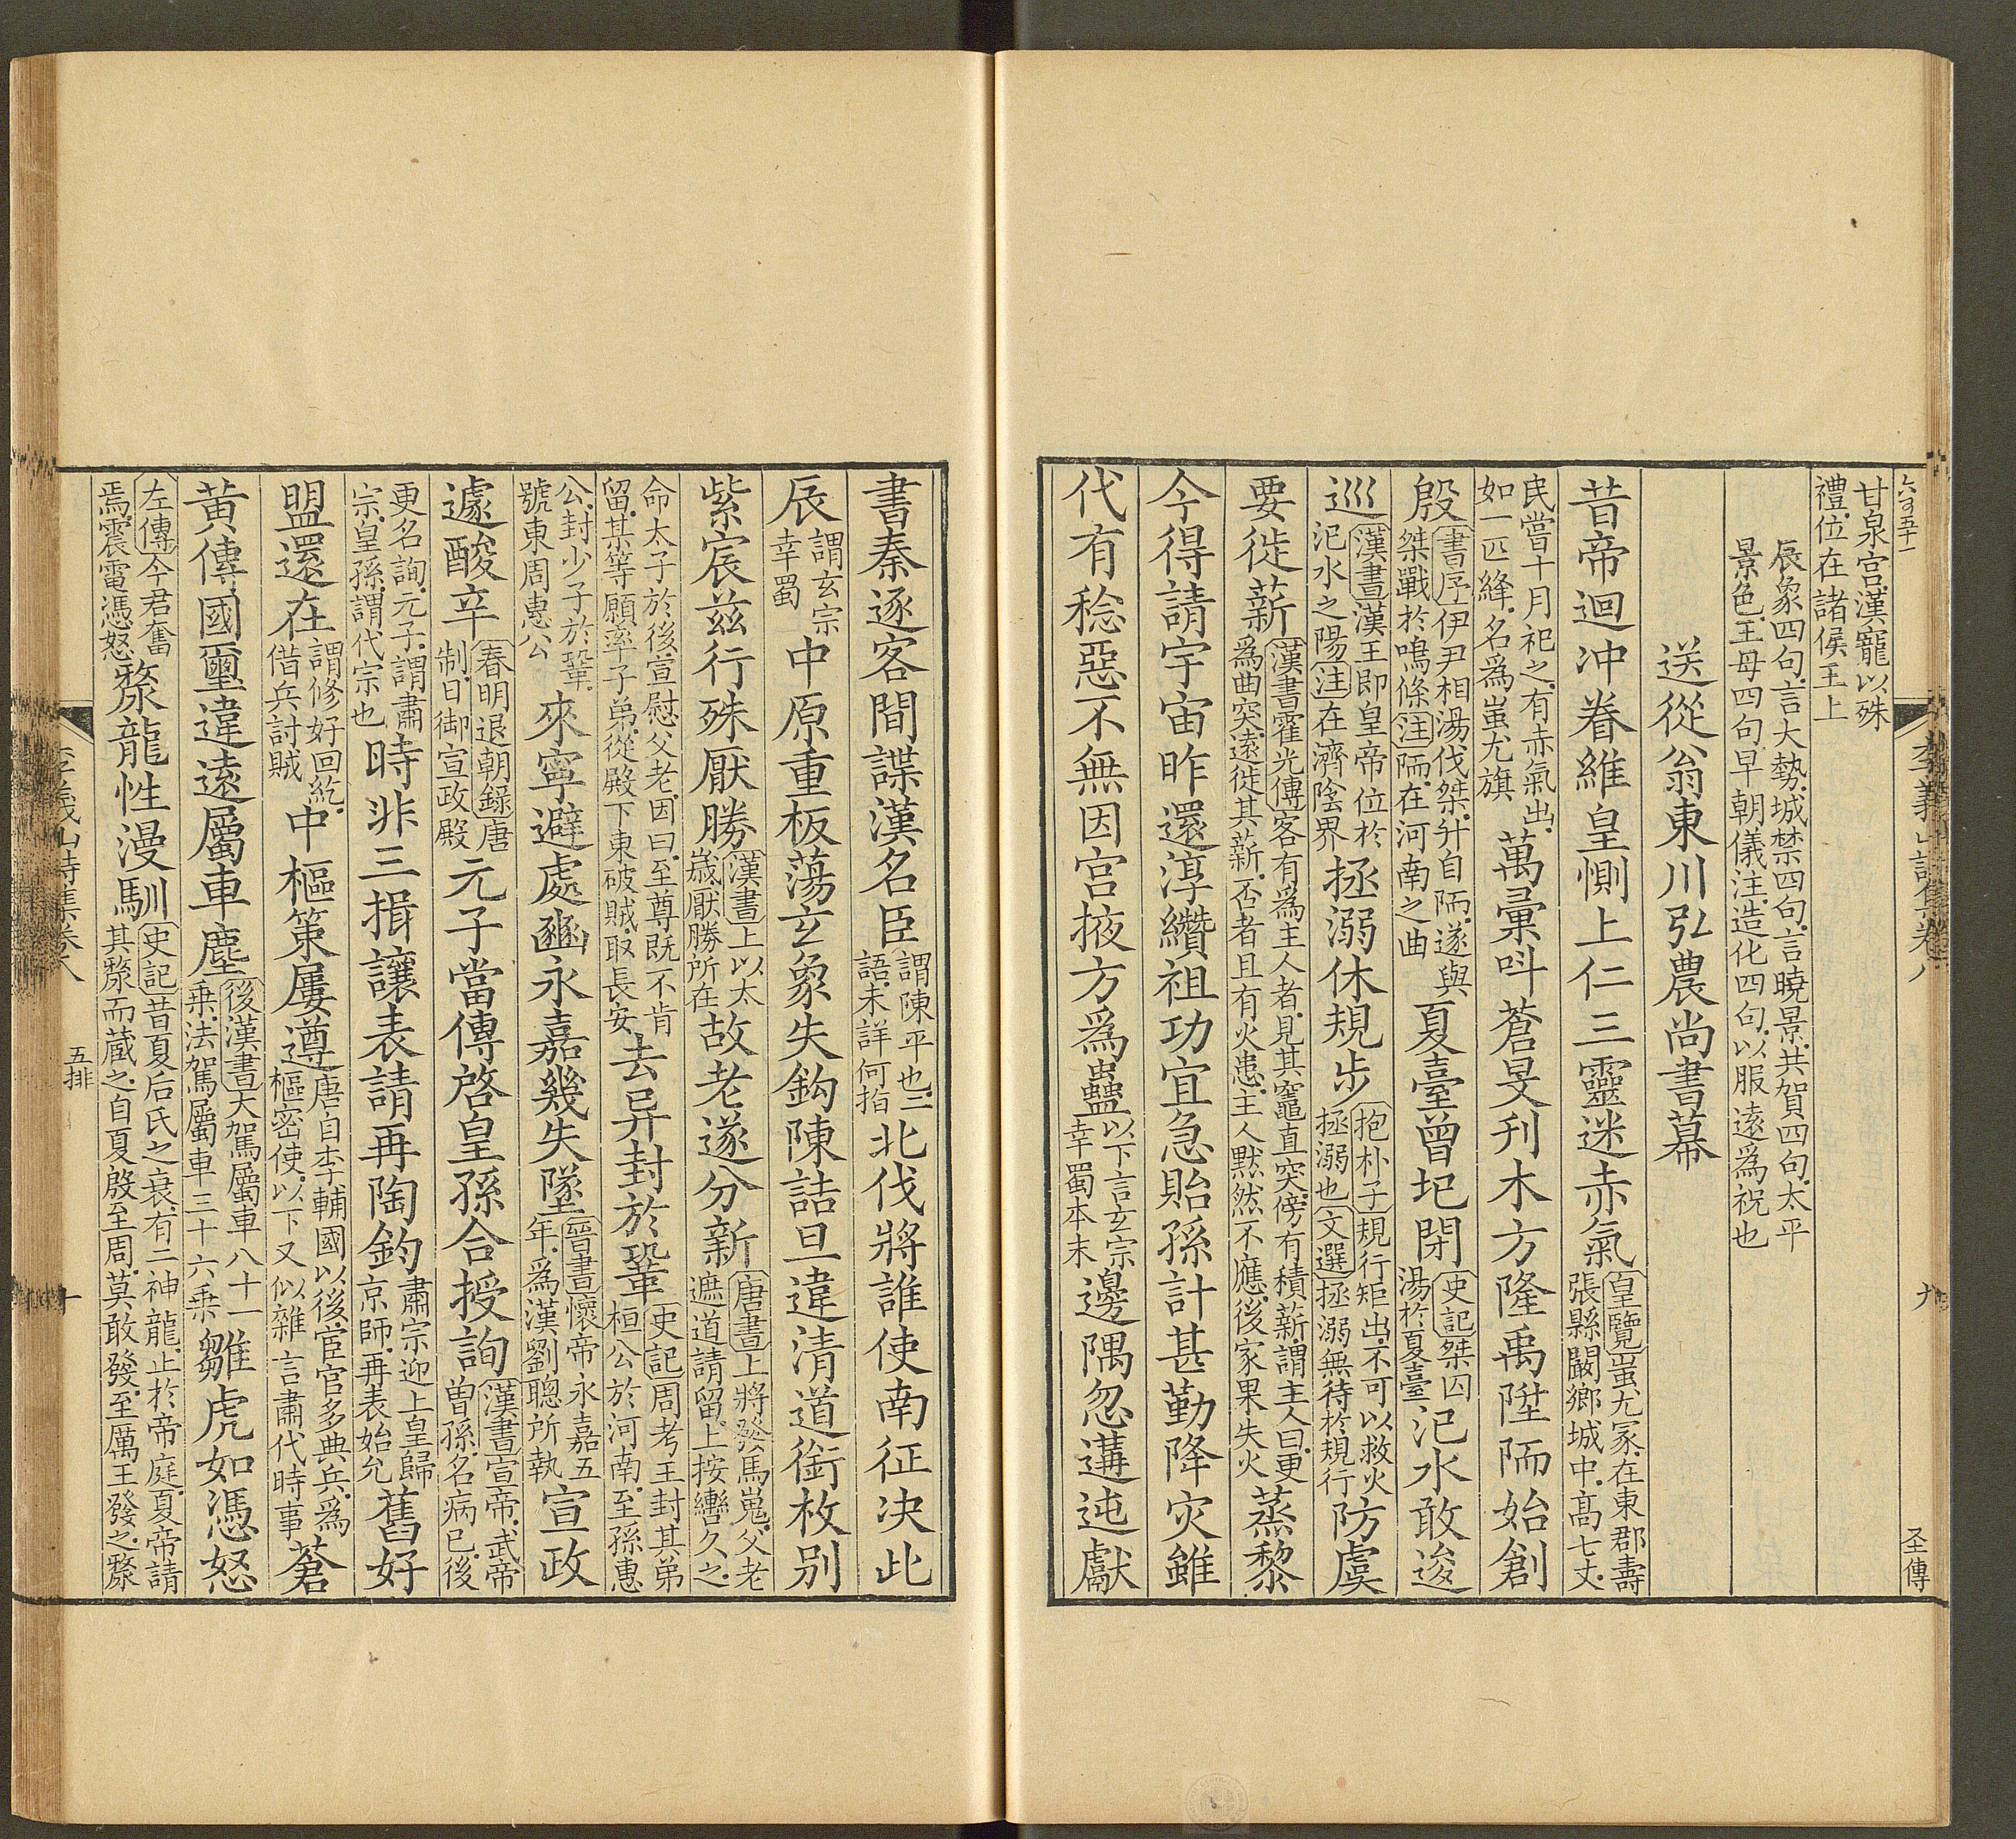 六百五十一 李義山詩集卷八 九 圣傳
甘泉宮漢寵以殊禮位在諸侯王上
辰象四句言大勢城禁四句言曉景共賀四句太平景色王母四句早朝儀注造化四句以服遠為祝也
送從翁東川弘農尚書幕
昔帝迴冲眷維皇惻上仁三靈迷赤氣皇覽蚩尤冢在東郡壽張縣闞鄉城中高七丈
民嘗十月祀之有赤氣出如一匹絳名為蚩尤旗萬彙呌蒼旻刋木方隆禹陞陑始創
殷書序伊尹相湯伐桀升自陑遂與桀戰於鳴條注陑在河南之曲夏臺曾圯閉史記桀囚湯於夏臺汜水敢逡
巡漢書漢王即皇帝位於汜水之陽注在濟陰界拯溺休規步抱朴子規行矩出不可以救火拯溺也文選拯溺無待於規行防虞
要徙薪漢書霍光傳客有為主人者見其竈直突傍有積薪謂主人曰更為曲突遠徙其薪否者且有火患主人黙然不應後家果失火蒸黎
今得請宇宙昨還淳纘祖功宜急貽孫計甚勤降灾雖
代有稔惡不無因宮掖方爲蠱以下言玄宗幸蜀本末邊隅忽遘迍獻
書秦逐客間諜漢名臣謂陳平也二語未詳何指北伐將誰使南征决此
辰謂玄宗幸蜀中原重板蕩玄象失鈎陳詰旦違清道銜枚别
紫宸茲行殊厭勝漢書上以太歲厭勝所在故老遂分新唐書上將發馬嵬父老遮道請留上按轡久之
命太子於後宣慰父老因曰至尊既不肯留某等願率子弟從殿下東破賊取長安去异封於鞏史記周考王封其弟桓公於河南至孫惠
公封少子於鞏號東周惠公來寧避處豳永嘉幾失墜晉書懷帝永嘉五年為漢劉聰所執宣政
遽酸辛春明退朝錄唐制日御宣政殿元子當傳啓皇孫合授詢漢書宣帝武帝曾孫名病已後
更名詢元子謂肅宗皇孫謂代宗也時非三揖讓表請再陶鈞肅宗迎上皇歸京師再表始允舊好
盟還在謂修好回紇借兵討賊中樞策屢遵唐自李輔國以後宦官多典兵為樞密使以下又似雜言肅代時事蒼
黃傳國璽違遠屬車塵後漢書大駕屬車八十一乘法駕屬車三十六乘雛虎如憑怒
左傳今君奮焉震電憑怒漦龍性漫馴史記昔夏后氏之衰有二神龍止於帝庭夏帝請其漦而藏之自夏殷至周莫敢發至厲王發之漦
李義山詩集卷八 五排 十